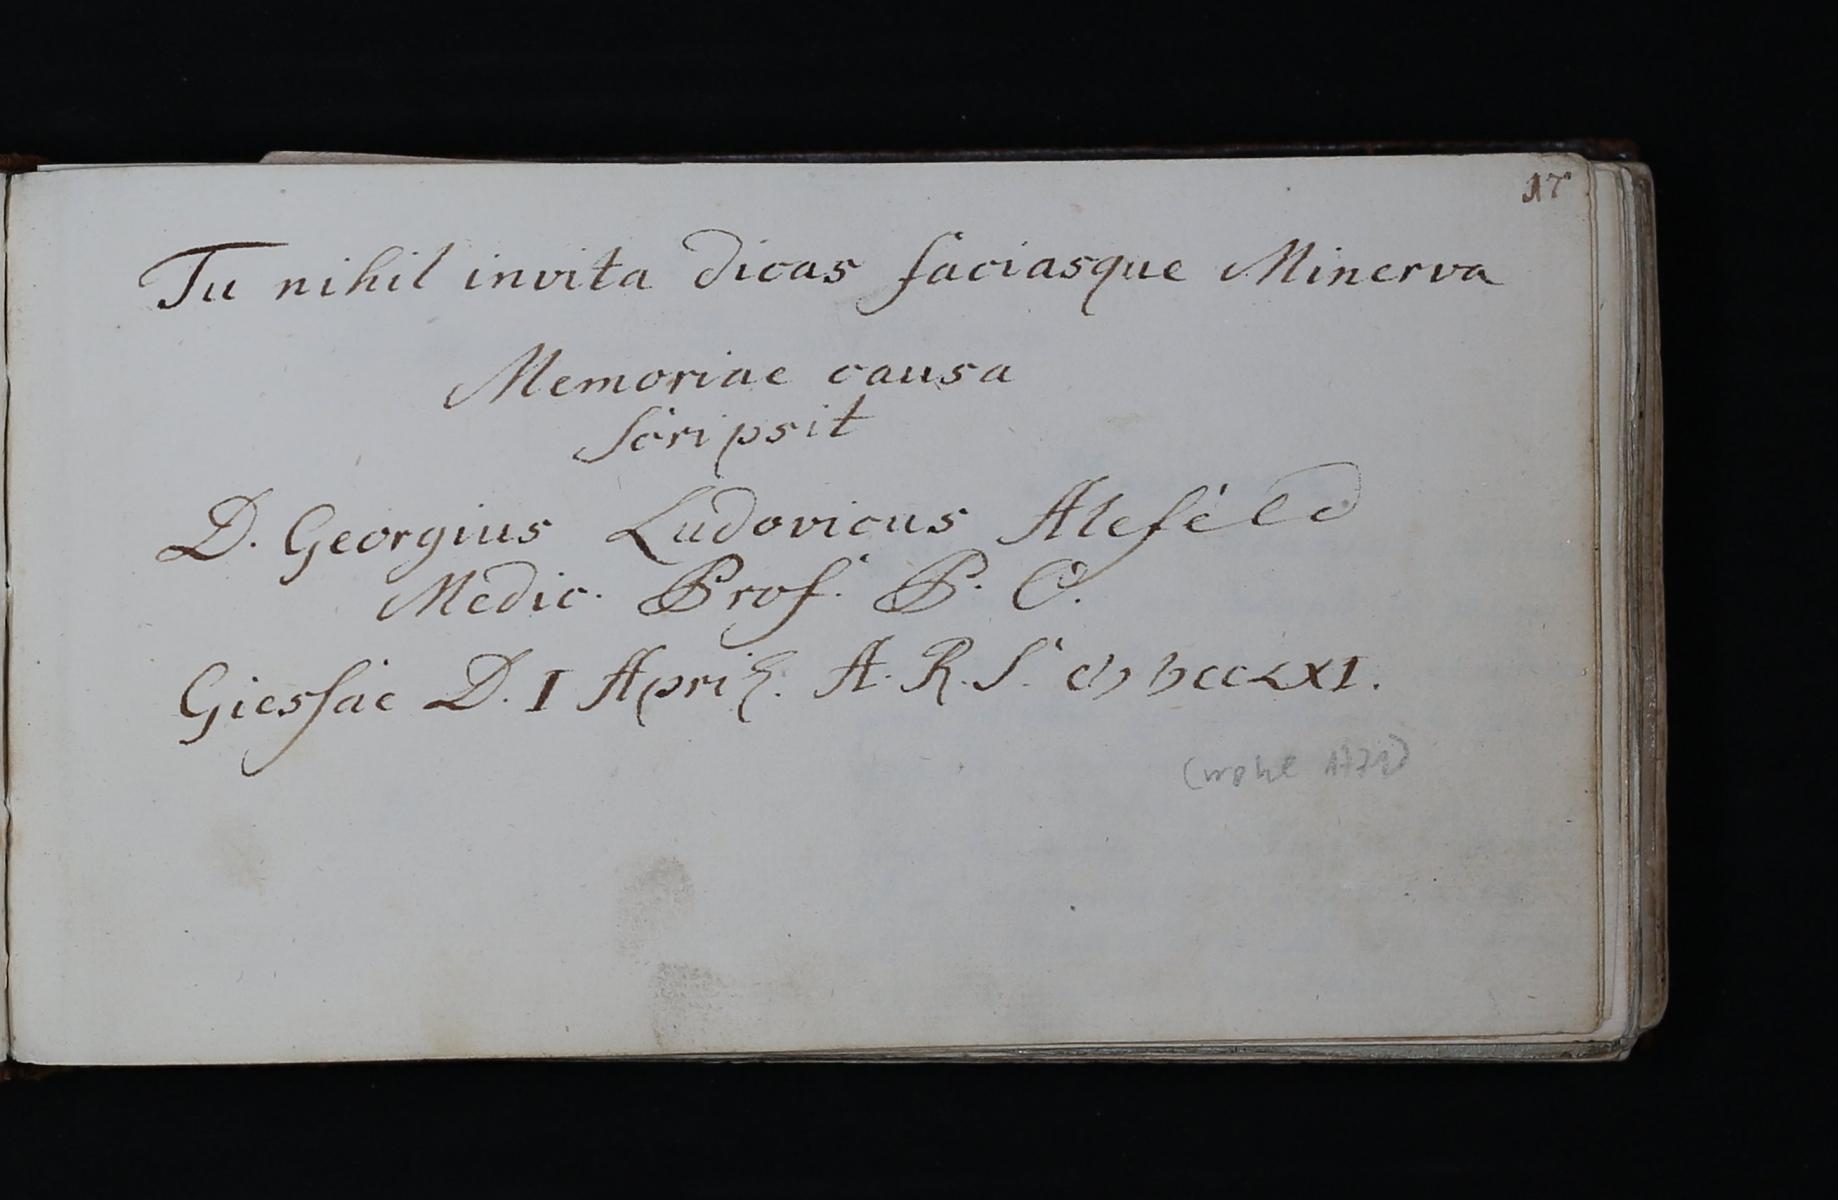 17
Tu nihil invita dicas faciasque Minerva
Memoriae causa
scripsit
D. Georgius Ludovicus Alefeld
Medic. Prof. P. O.
Giessae D. I April. A. R. S. cIↃ IↃccLXI.
(wohl 1771)